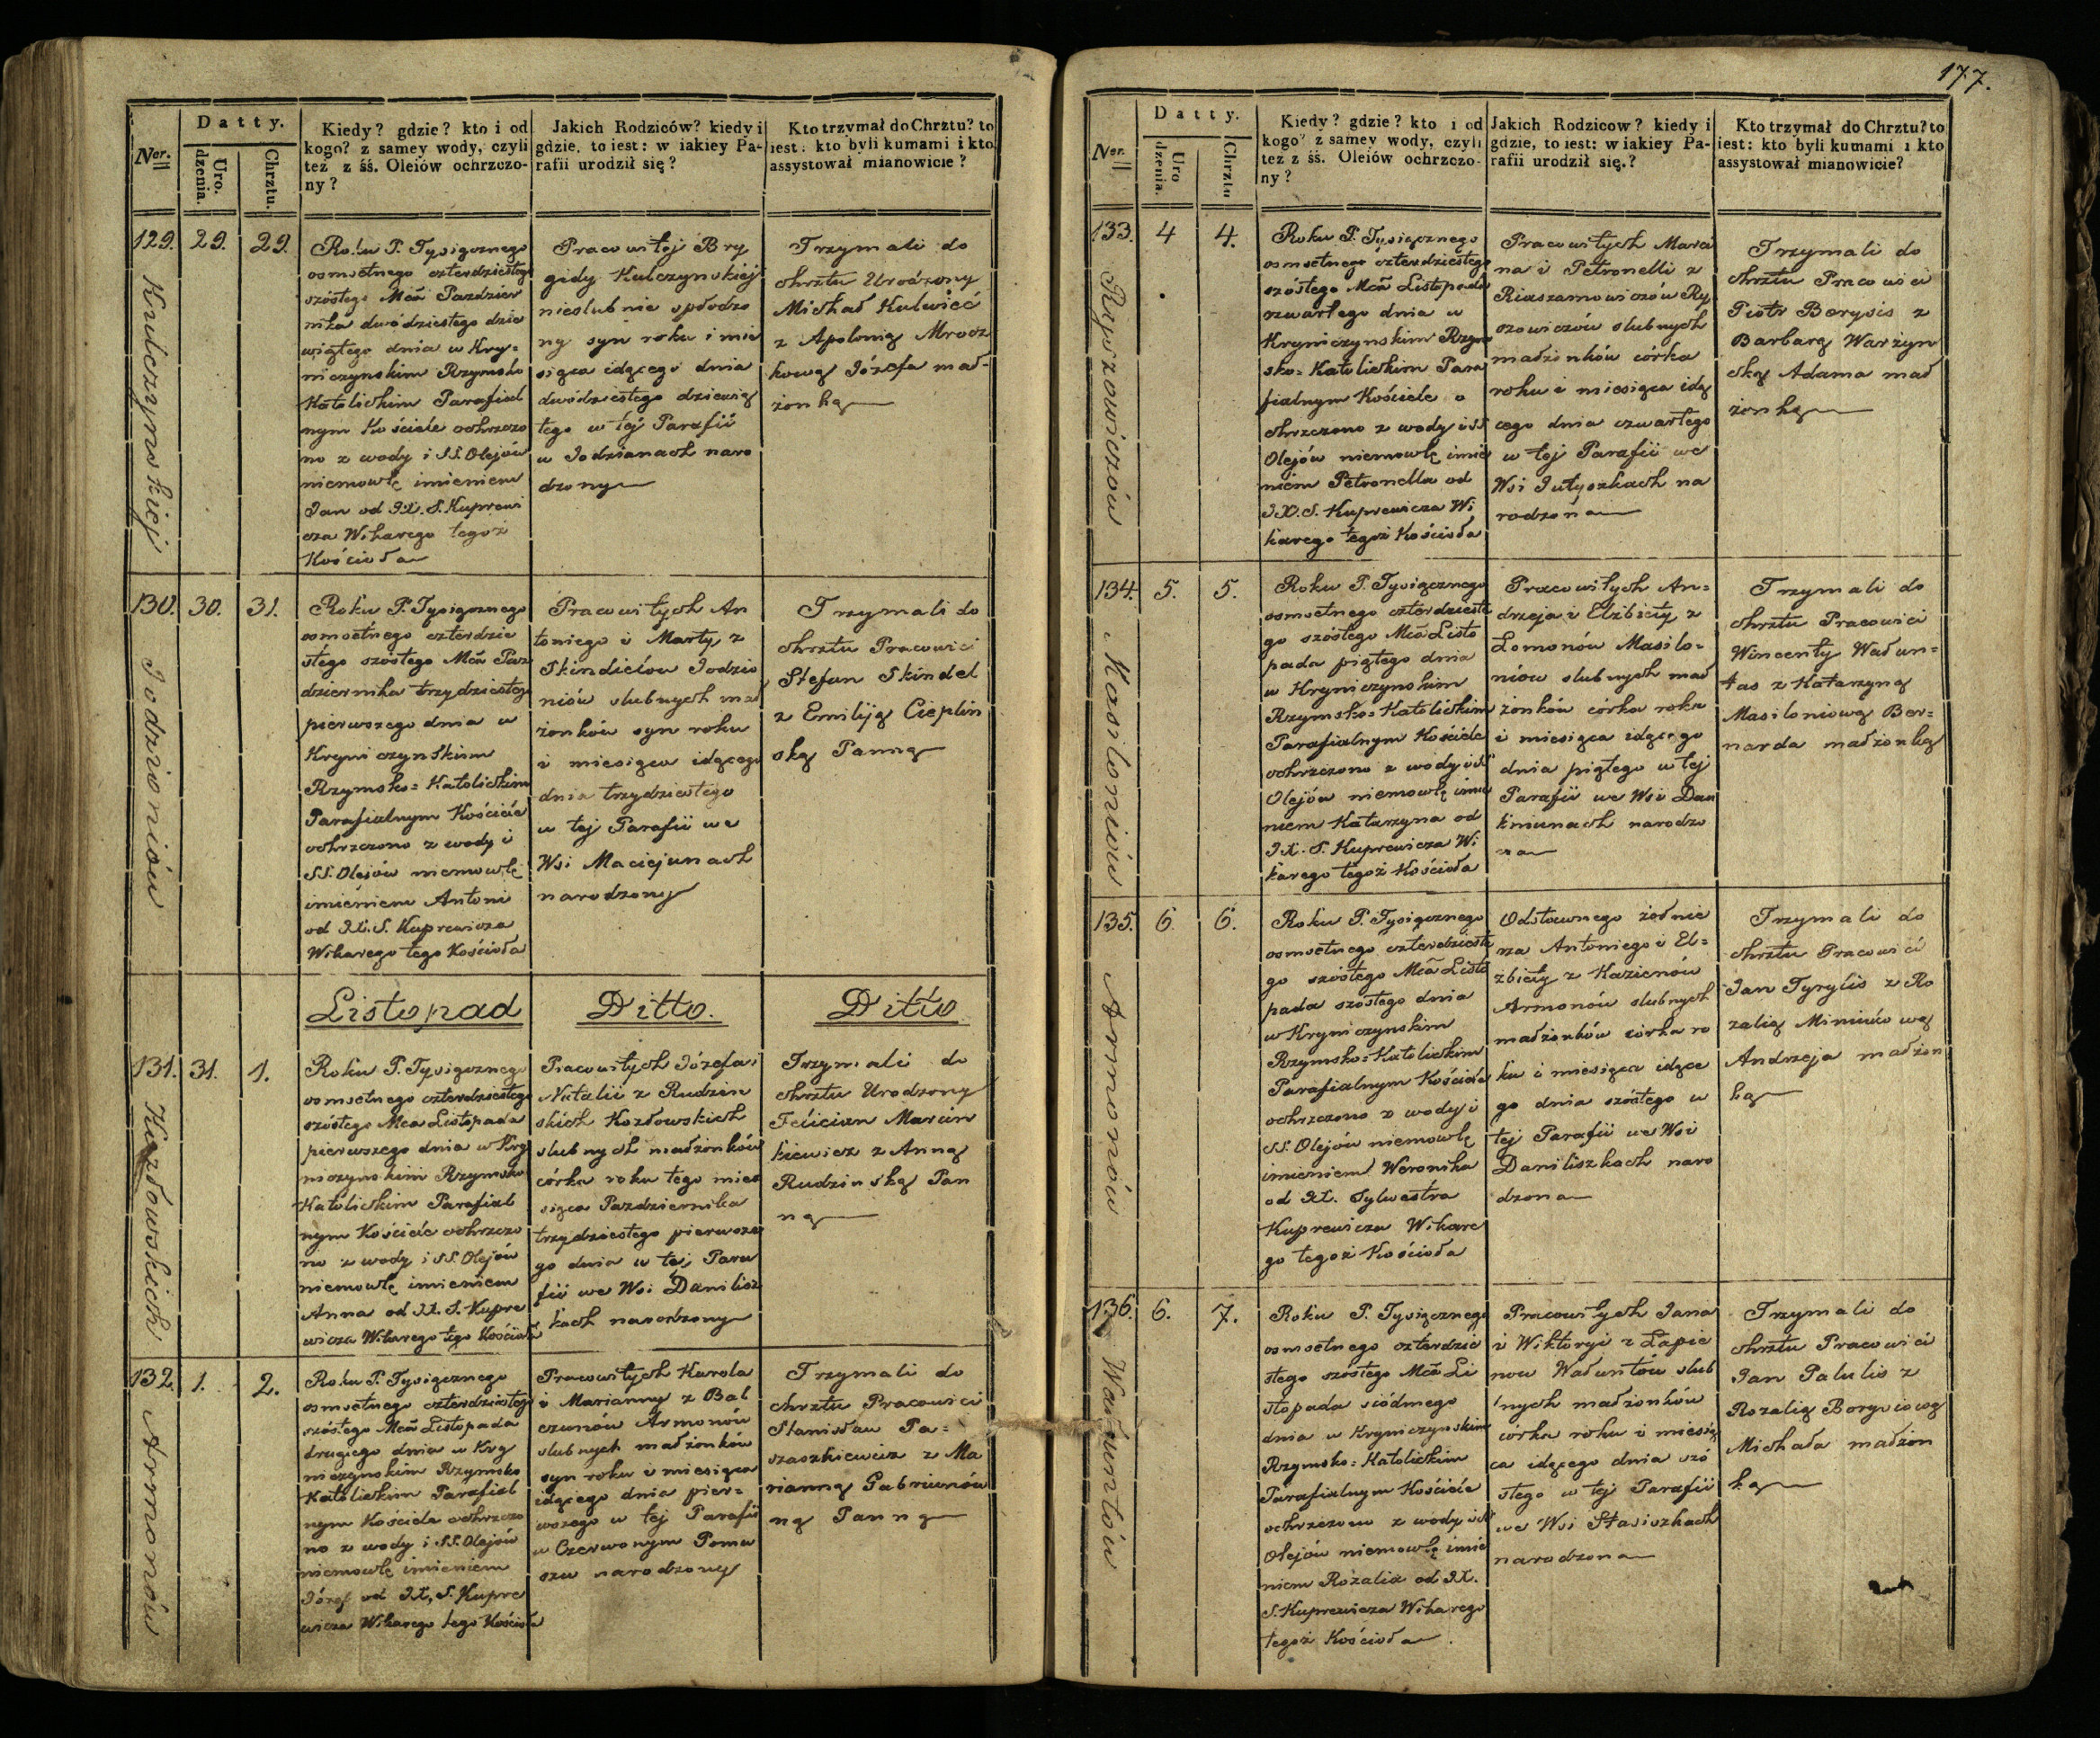 177.
Datty.
Ner.
Uro.
dzenia.
Chrztu.
Kiedy? gdzie? kto i od
kogo? z samey wody, czyli
też z śś. Oleiów ochrzczo-
ny?
Jakich Rodziców? kiedy i
gdzie, to iest: w iakiey Pa-
rafii urodził się?
Kto trzymał do Chrztu? to
iest: kto byli kumami i kto
assystował mianowicie?
129.
29.
29.
Kulczynskiej
Roku P. Tysiącznego
osmsetnego czterdziestego
szóstego Mca Pazdzier
nika dwódziestego dzie
wiątego dnia w Kry=
niczynskim Rzymsko
Katolickim Parafial
nym Kosciele ochrzczo
no z wody i S.S. Olejów
niemowlę imieniem
Jan od JX. S. Kuprewi
cza Wikarego tegoż
Kościoła
Pracowitej Bry
gidy Kulczynskiej
nieslubnie spłodzo
ny syn roku i mie
siąca idącego dnia
dwódziestego dziewią
tego w tej Parafii
w Jodzianach naro
dzony
Trzymali do
chrztu Urodzony
Michał Kulwieć
z Apolonią Mrocz
kową Józefa mał-
żonką
130.
30.
31.
Jodzioniów
Roku P. Tysiącznego
osmsetnego czterdzie
stego szóstego Mca Paz
dziernika trzydziestego
pierwszego dnia w
Kryniczynskim
Rzymsko=Katolickim
Parafialnym Kościele
ochrzczono z wody i
S.S. Olejów niemowlę
imieniem Antoni
od JX. S. Kuprewicza
Wikarego tego Kościoła
Pracowitych An
toniego i Marty z
Skindielów Jodzio
niów slubnych mał
żonków syn roku
i miesiąca idącego
dnia trzydziestego
w tej Parafii we
Wsi Maciejunach
narodzony
Trzymali do
chrztu Pracowici
Stefan Skindel
z Emiliją Cieplin
ską Panną
Listopad
Ditto.
Ditto
131.
31.
1.
Kozłowskich
Roku P. Tysiącznego
osmsetnego czterdziestego
szóstego Mca Listopada
pierwszego dnia w Kry
niczynskim Rzymsko
Katolickim Parafial
nym Kościele ochrzczo
no z wody i S.S. Olejów
niemowlę imieniem
Anna od JX. S. Kupre
wicza Wikarego tego Kościoła
Pracowitych Józefa i
Natalii z Rudzin
skich Kozłowskich
slubnych małżonków
córka roku tego mies
siąca Pazdziernika
trzydziestego pierwsze
go dnia w tej Para
fii we Wsi Danilisz
kach narodzony
Trzymali do
chrztu Urodzony
Felician Marcin
kiewicz z Anną
Rudzinską Pan
ną
132.
1.
2.
Armonów
Roku P. Tysiącznego
osmsetnego czterdziestego
szóstego Mca Listopada
drugiego dnia w Kry
niczynskim Rzymsko
Katolickim Parafial
nym Kosciele ochrzczo
no z wody i S.S. Olejów
niemowlę imieniem
Józef od JX. S. Kupre
wicza Wikarego tego Kościoła
Pracowitych Karola
i Marianny z Bal
czunów Armonów
slubnych małżonków
syn roku i miesiąca
idącego dnia pier=
wszego w tej Parafii
w Czerwonym Pomu
szu narodzony
Trzymali do
chrztu Pracowici
Stanisław Pa=
szaszkiewicz z Ma
rianną Gabriunów
ną Panną
Datty.
Ner.
Uro
dzenia.
Chrztu
Kiedy? gdzie? kto i od
kogo? z samey wody, czyli
tez z śś. Oleiów ochrzczo-
ny?
Jakich Rodzicow? kiedy i
gdzie, to iest: w iakiey Pa-
rafii urodził się?
Kto trzymał do Chrztu? to
iest: kto byli kumami i kto
assystował mianowicie?
133.
4
4.
Ryszowiczów
Roku P. Tysiącznego
osmsetnego czterdziestego
szóstego Mca Listopada
czwartego dnia w
Kryniczynskim Rzym
sko=Katolickim Para
fialnym Kościele o
chrzczono z wody i SS
Olejów niemowlę imie
niem Petronella od
JX. S. Kuprewicza Wi
karego tegoż Kościoła
Pracowitych Marci
na i Petronelli z
Ry
szowiczów slubnych
małżonków córka
roku i miesiąca idą
cego dnia czwartego
w tej Parafii we
Wsi Jutyszkach na
rodzona
Trzymali do
chrztu Pracowici
Piotr Borysis z
Barbarą Warżyn
ską Adama mał
żonką
134.
5.
5.
Masiloniów
Roku P. Tysiącznego
osmsetnego czterdzieste
go szóstego Mca Listo
pada piątego dnia
w Kryniczynskim
Rzymsko=Katolickim
Parafialnym Kosciele
ochrzczono z wody i SS
Olejów niemowlę imie
niem Katarzyna od
JX. S. Kuprewicza Wi
karego tegoż Kościoła
Pracowitych An=
drzeja i Elżbiety z
Lomonów Masilo=
niów slubnych mał
żonków córka roku
i miesiąca idącego
dnia piątego w tej
Parafii we Wsi Dau
kniunach narodzo
na
Trzymali do
chrztu Pracowici
Wincenty Wałun=
tas z Katarzyną
Masiloniową Ber=
narda małżonką
135.
6.
6.
Armonów
Roku P. Tysiącznego
osmsetnego czterdzieste
go szóstego Mca Listo
pada szostego dnia
w Kryniczynskim
Rzymsko=Katolickim
Parafialnym Kościele
ochrzczono z wody i
S.S. Olejów niemowlę
imieniem Weronika
od JX. Sylwestra
Kuprewicza Wikare
go tegoż Kościoła
Odstawnego żołnie
rza Antoniego i El=
zbiety z Kazienów
Armonów slubnych
małżonków córka ro
ku i miesiąca idące
go dnia szóstego w
tej Parafii we Wsi
Daniliszkach naro
dzona
Trzymali do
chrztu Pracowici
Jan Tyrylis z Ro
zalią Miniućo wą
Andrzeja małżon
ką
136.
6.
7.
Wałuntów
Roku P. Tysiącznego
osmsetnego czterdzie
stego szostego Mca Li
stopada siódmego
dnia w Kryniczynskim
Rzymsko=Katolickim
Parafialnym Kościele
ochrzczono z wody i SS
Olejów niemowlę imie
niem Rozalia od JX.
S. Kuprewicza Wikarego
tegoż Kościoła
Pracowitych Jana
i Wiktoryi z Łapie
now Wałuntów slub
nych małżonków
córka roku i miesią
ca idącego dnia szó
stego w tej Parafii
we Wsi Stasiszkach
narodzona
Trzymali do
chrztu Pracowici
Jan Palulis z
Rozalią Borysiową
Michała małżon
ką